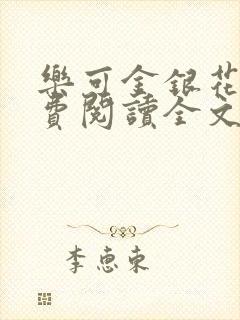 樂可金銀花
費閱讀全文
李惠東